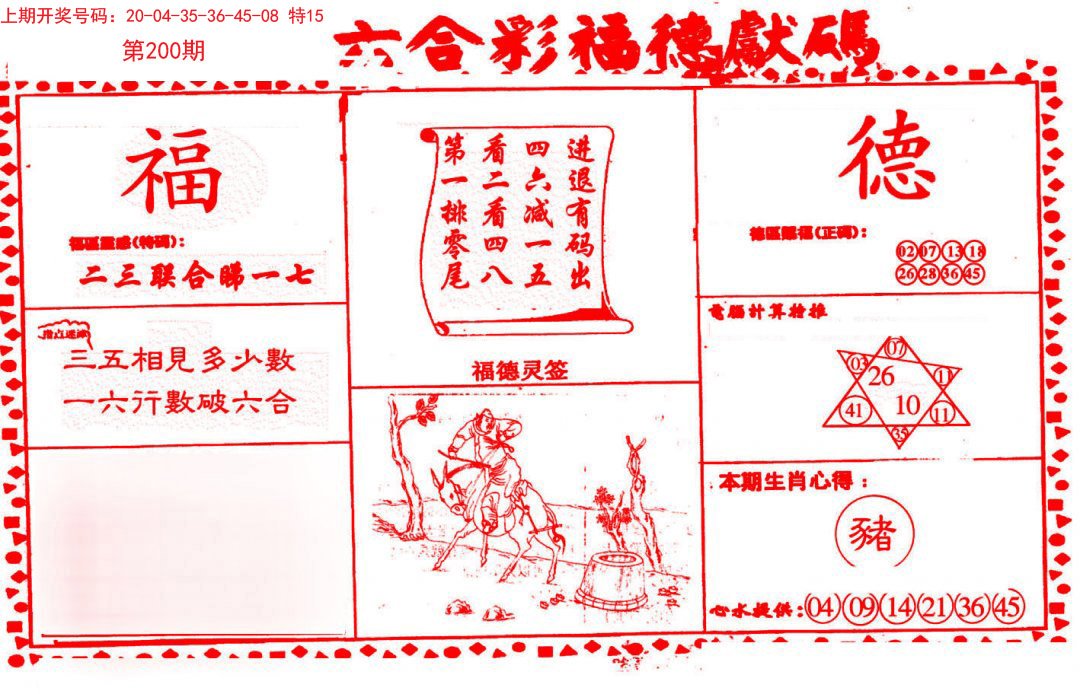 上期开奖号码：20-04-35-36-45-08 特15
第200期
六合彩福德獻碼
福
福區靈感(特碼)：
二三联合睇一七
指点迷津
三五相見多少數
一六行數破六合
进退有码出
四六减一五
看二看四八
第一排零尾
福德灵签
德
德區賜福(正碼)：
02 07 13 18
26 28 36 45
電腦計算推
07
03
26
41
10
11
35
本期生肖心得：
豬
心水提供：04 09 14 21 36 45